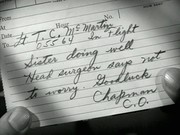 No.
Hour
To
Lt T. C. McMartin
05569 In Flight
Sister doing well
Head surgeon says not
to worry. Good luck
Chapman
C.O.